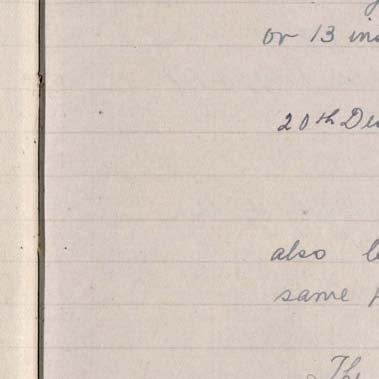 or 13 in
20th De
also le
same
Th